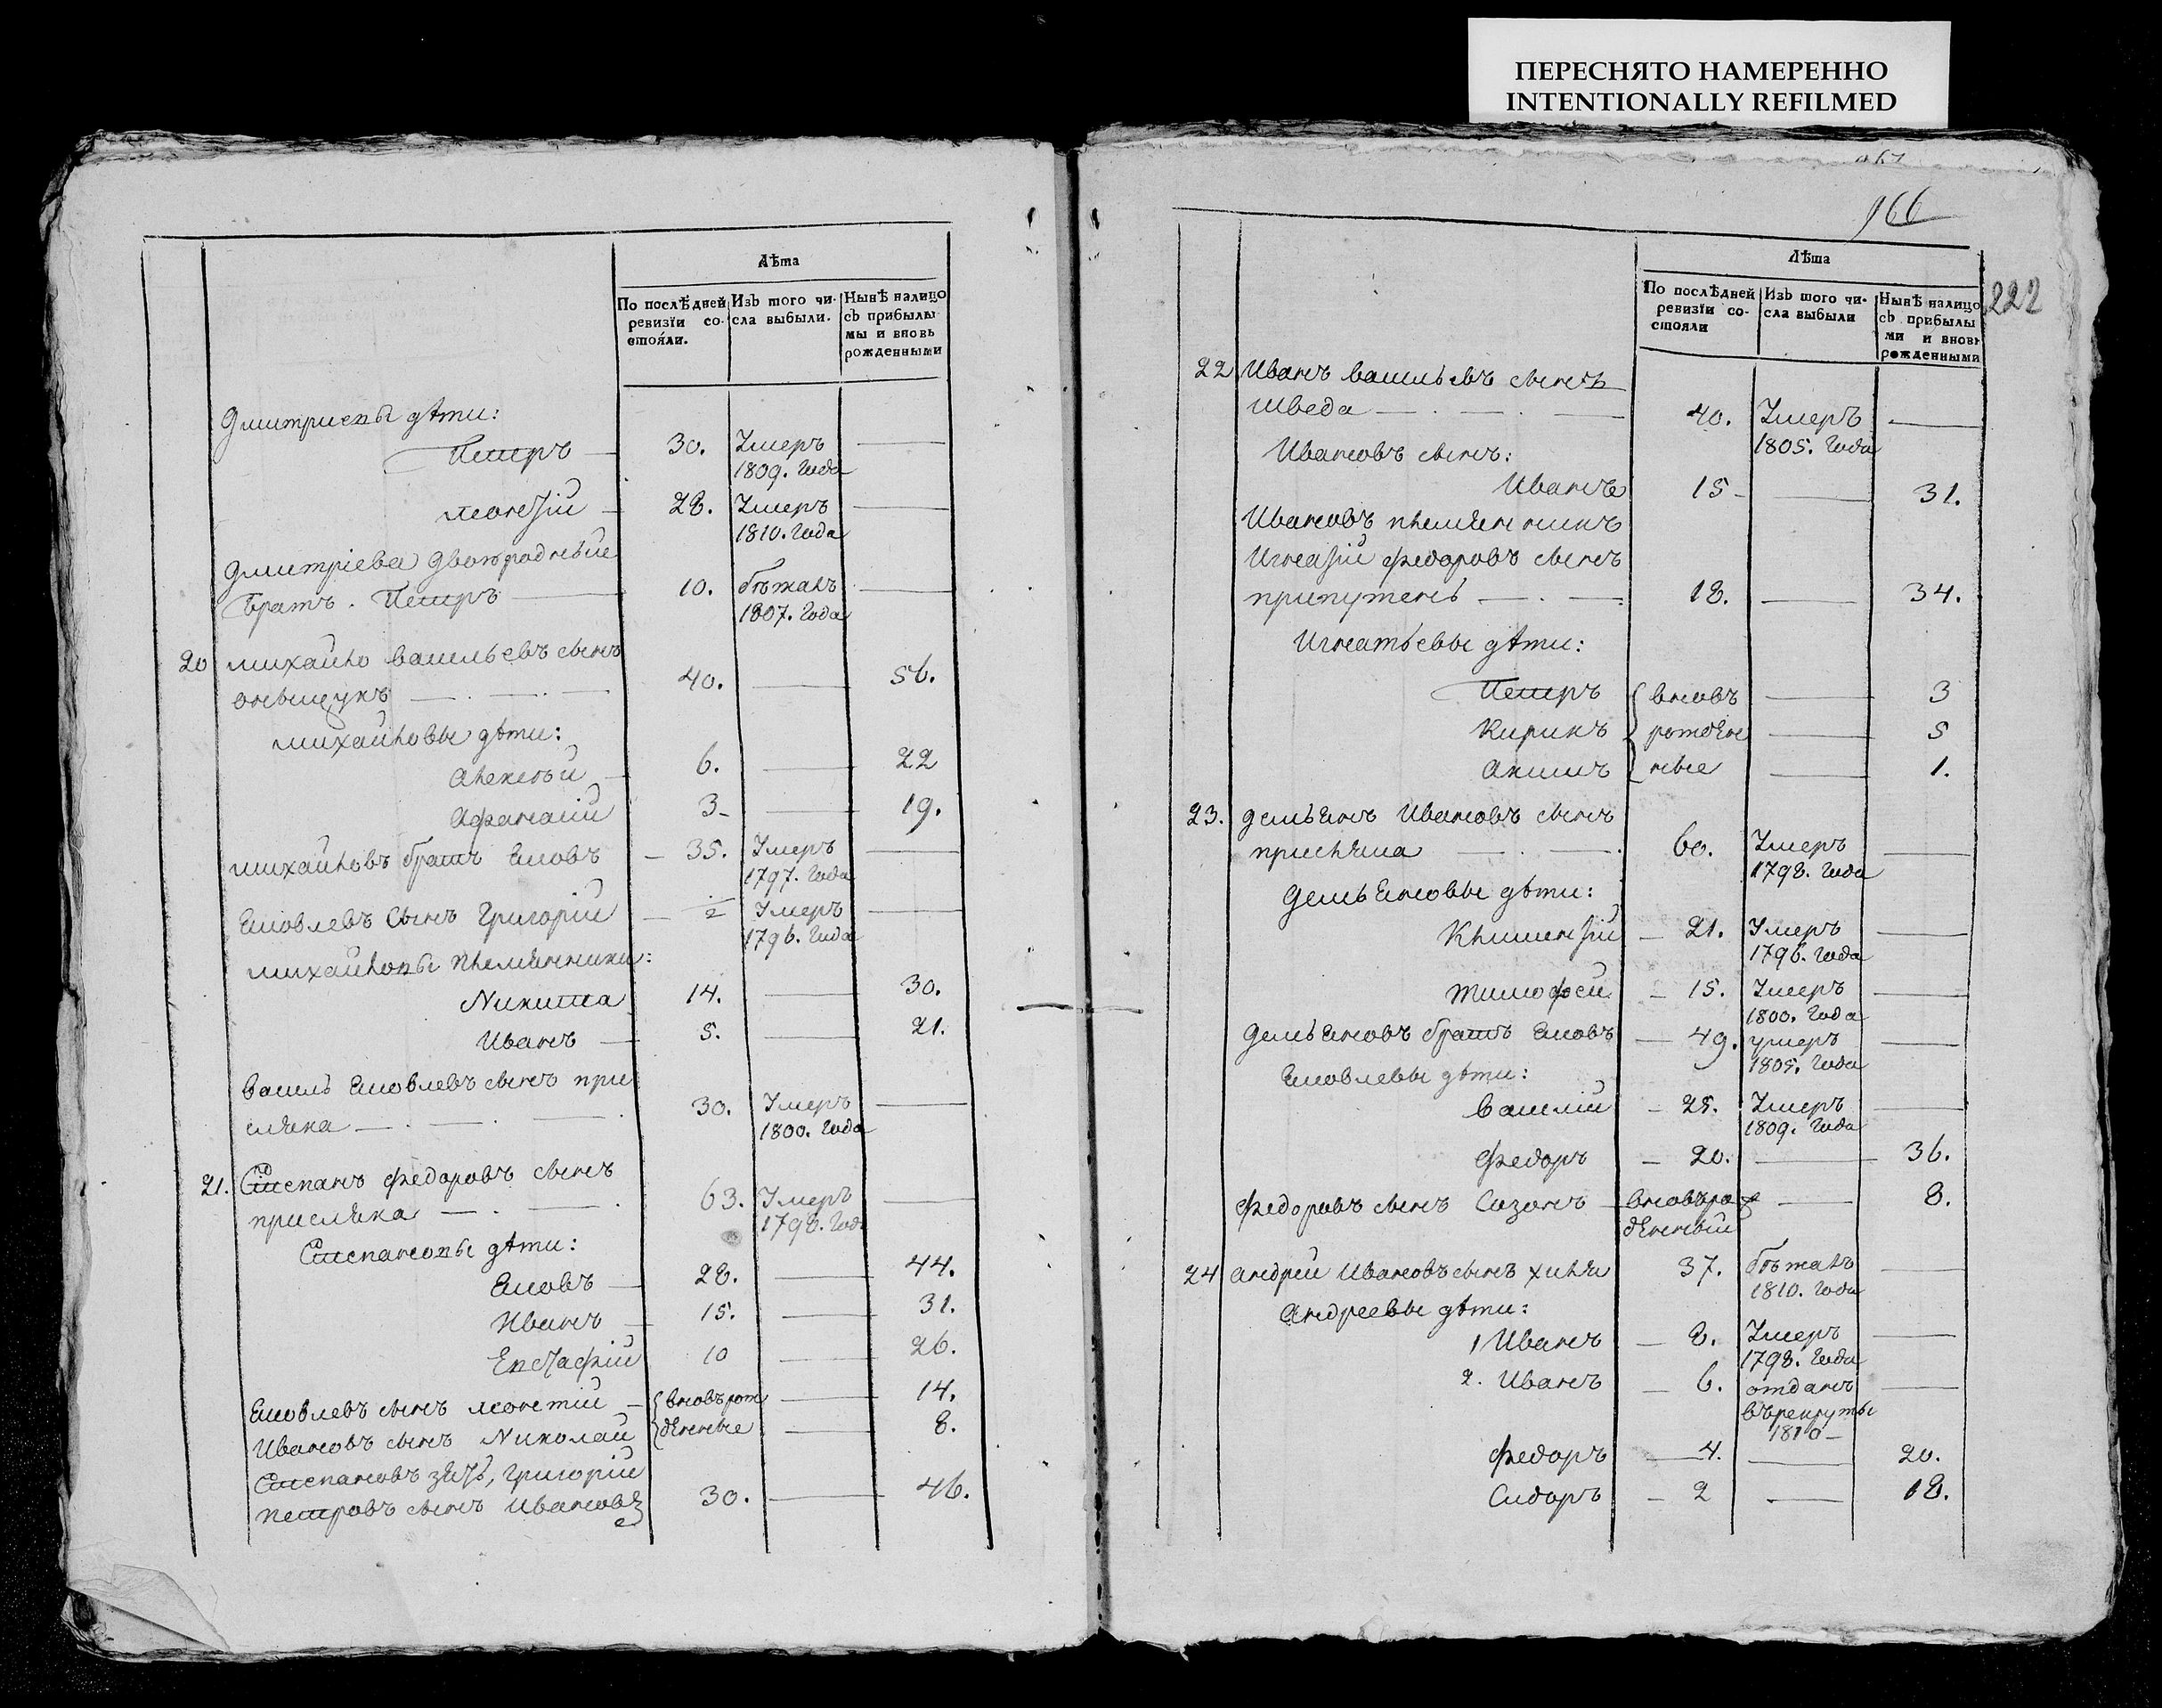 ПЕРЕСНЯТО НАМЕРЕННО
INTENTIONALLY REFILMED
Лѣта
По послѣдней ревизїи состоя́ли.
Изъ того числа выбыли.
Нынѣ налицо съ прибылымы и вновь рожденными
Дмитриевы дѣти:
Петръ — 30. Умеръ —
1809. Года
Леонтій — 28. Умеръ —
1810. Года
Дмитріева двоюродные
братъ. Петръ — 10. бѣжалъ —
1807. Года
20 Михайло Васильевъ сынъ
40. — 56.
Михайловы дѣти:
Алексѣй — 6. — 22
Афанасій 3- — 19.
Михайловъ братъ Яковъ — 35. Умеръ —
1797. Года
Яковлевъ Сынъ Григорій — 2 Умеръ —
1796. Года
Михайловы племянники:
Никита 14. — 30.
Иванъ — 5. — 21.
Василь Яковлевъ сынъ при
сяжка — 30. Умеръ —
1800. Года
21. Степанъ Федоровъ сынъ
присяжка — 63. Умеръ —
1798. Года
Степановы дѣти:
Яковъ — 28. — 44.
Иванъ — 15. — 31.
Евстафій 10 — 26.
Яковлевъ сынъ Леонтій — вновь рож — 14.
Ивановъ сынъ Николай денные — 8.
Степановъ зять, Григорій
Петровъ сынъ Ивановъ 30. — 46.
966
222
Лѣта
По послѣдней ревизїи состояли
Изъ того числа выбыли
Нынѣ налицо съ прибылыми и вновь рожденными
22 Иванъ Васильевъ сынъ
Шведа — 40. Умеръ —
1805. Года
Ивановъ сынъ:
Иванъ 15- — 31.
Ивановъ племянникъ
Игнатій Федоровъ сынъ
припутень — 18. — 34.
Игнатьевы дѣти:
Петръ вновь — 3
Кирикъ рожден — 5
Акимъ ные — 1.
23. Демьянъ Ивановъ сынъ
60. Умеръ —
1798. Года
Демьяновы дѣти:
Климентій — 21. Умеръ —
1796. Года
Тимофей — 15. Умеръ —
1800. Года
Демьяновъ братъ Яковъ — 49. умеръ —
1805. Года
Яковлевы дѣти:
Василій — 25. Умеръ —
1809. Года
Федоръ — 20. — 36.
Федоровъ сынъ Созонъ — вновь рож — 8.
денный
24 Андрей Ивановъ сынъ 37. бѣжалъ —
1810. Года
Андреевы дѣти:
1 Иванъ — 8. Умеръ —
1798. Года
2. Иванъ — 6. отданъ —
въ рекруты
1810 —
Федоръ — 4. — 20.
Сидоръ — 2 — 18.